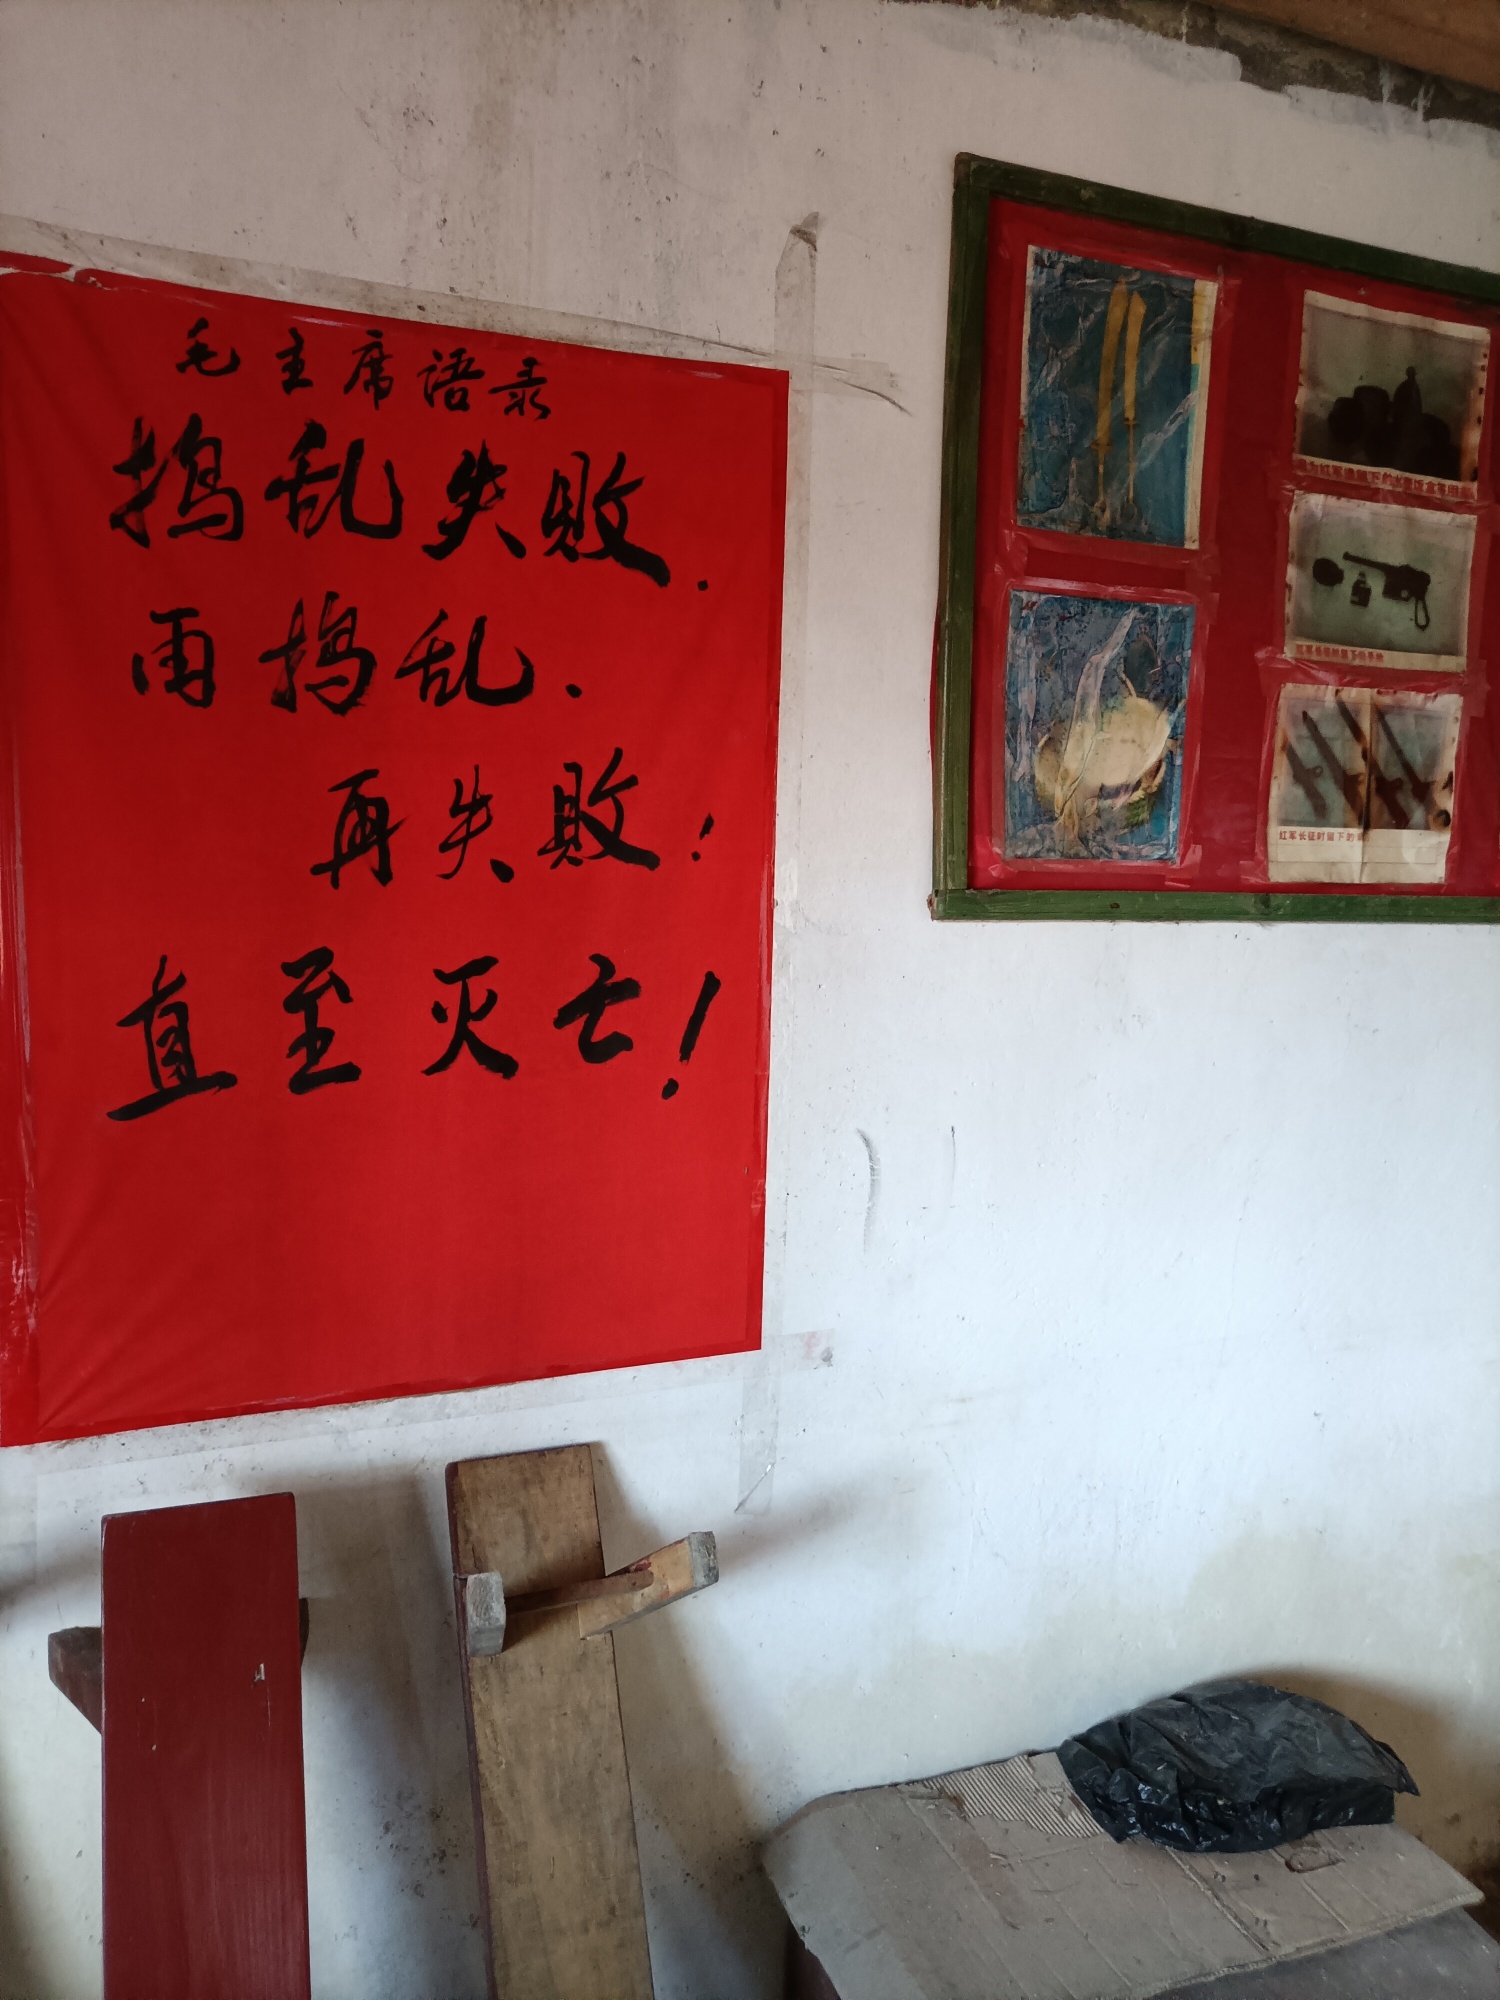 毛主席语录
捣乱失败.
再捣乱.
再失败!
直至灭亡!
红军长征时留下的